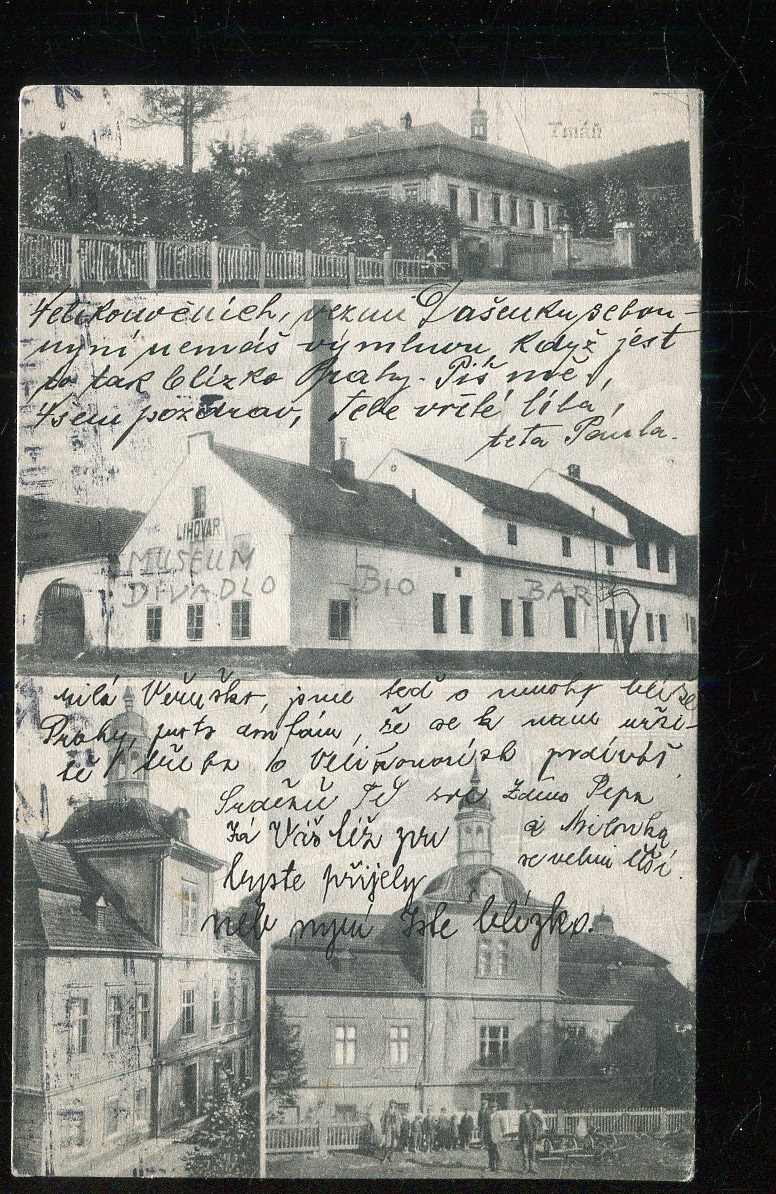 Tmáň
Velikonočních, vezmu Dašenku sebou
nyní nemáš výmluvu když jest
to tak blízko Prahy. Piš mě,
Všem pozdrav, Tebe vřelé líbá,
teta Pavla.
LIHOVAR
MUSEUM
DIVADLO
BIO
BAR
Milá Věruško, jsme teď o mnoho blíže
Prahy, proto doufám, že se k nám urči-
tě o Velikonocích podíváš.
Srdečně Tě zve Zdena Pepa
a Milouška
se velmi těší.
Já Váš též zvu
byste přijely
neb nyní jste blízko.